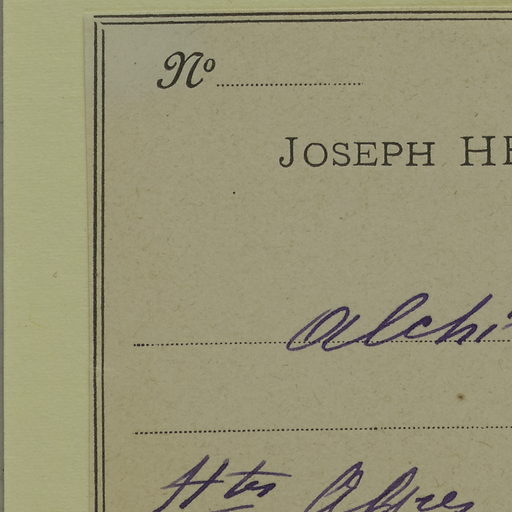 No
JOSEPH HE
Alchi
Htes Alpes